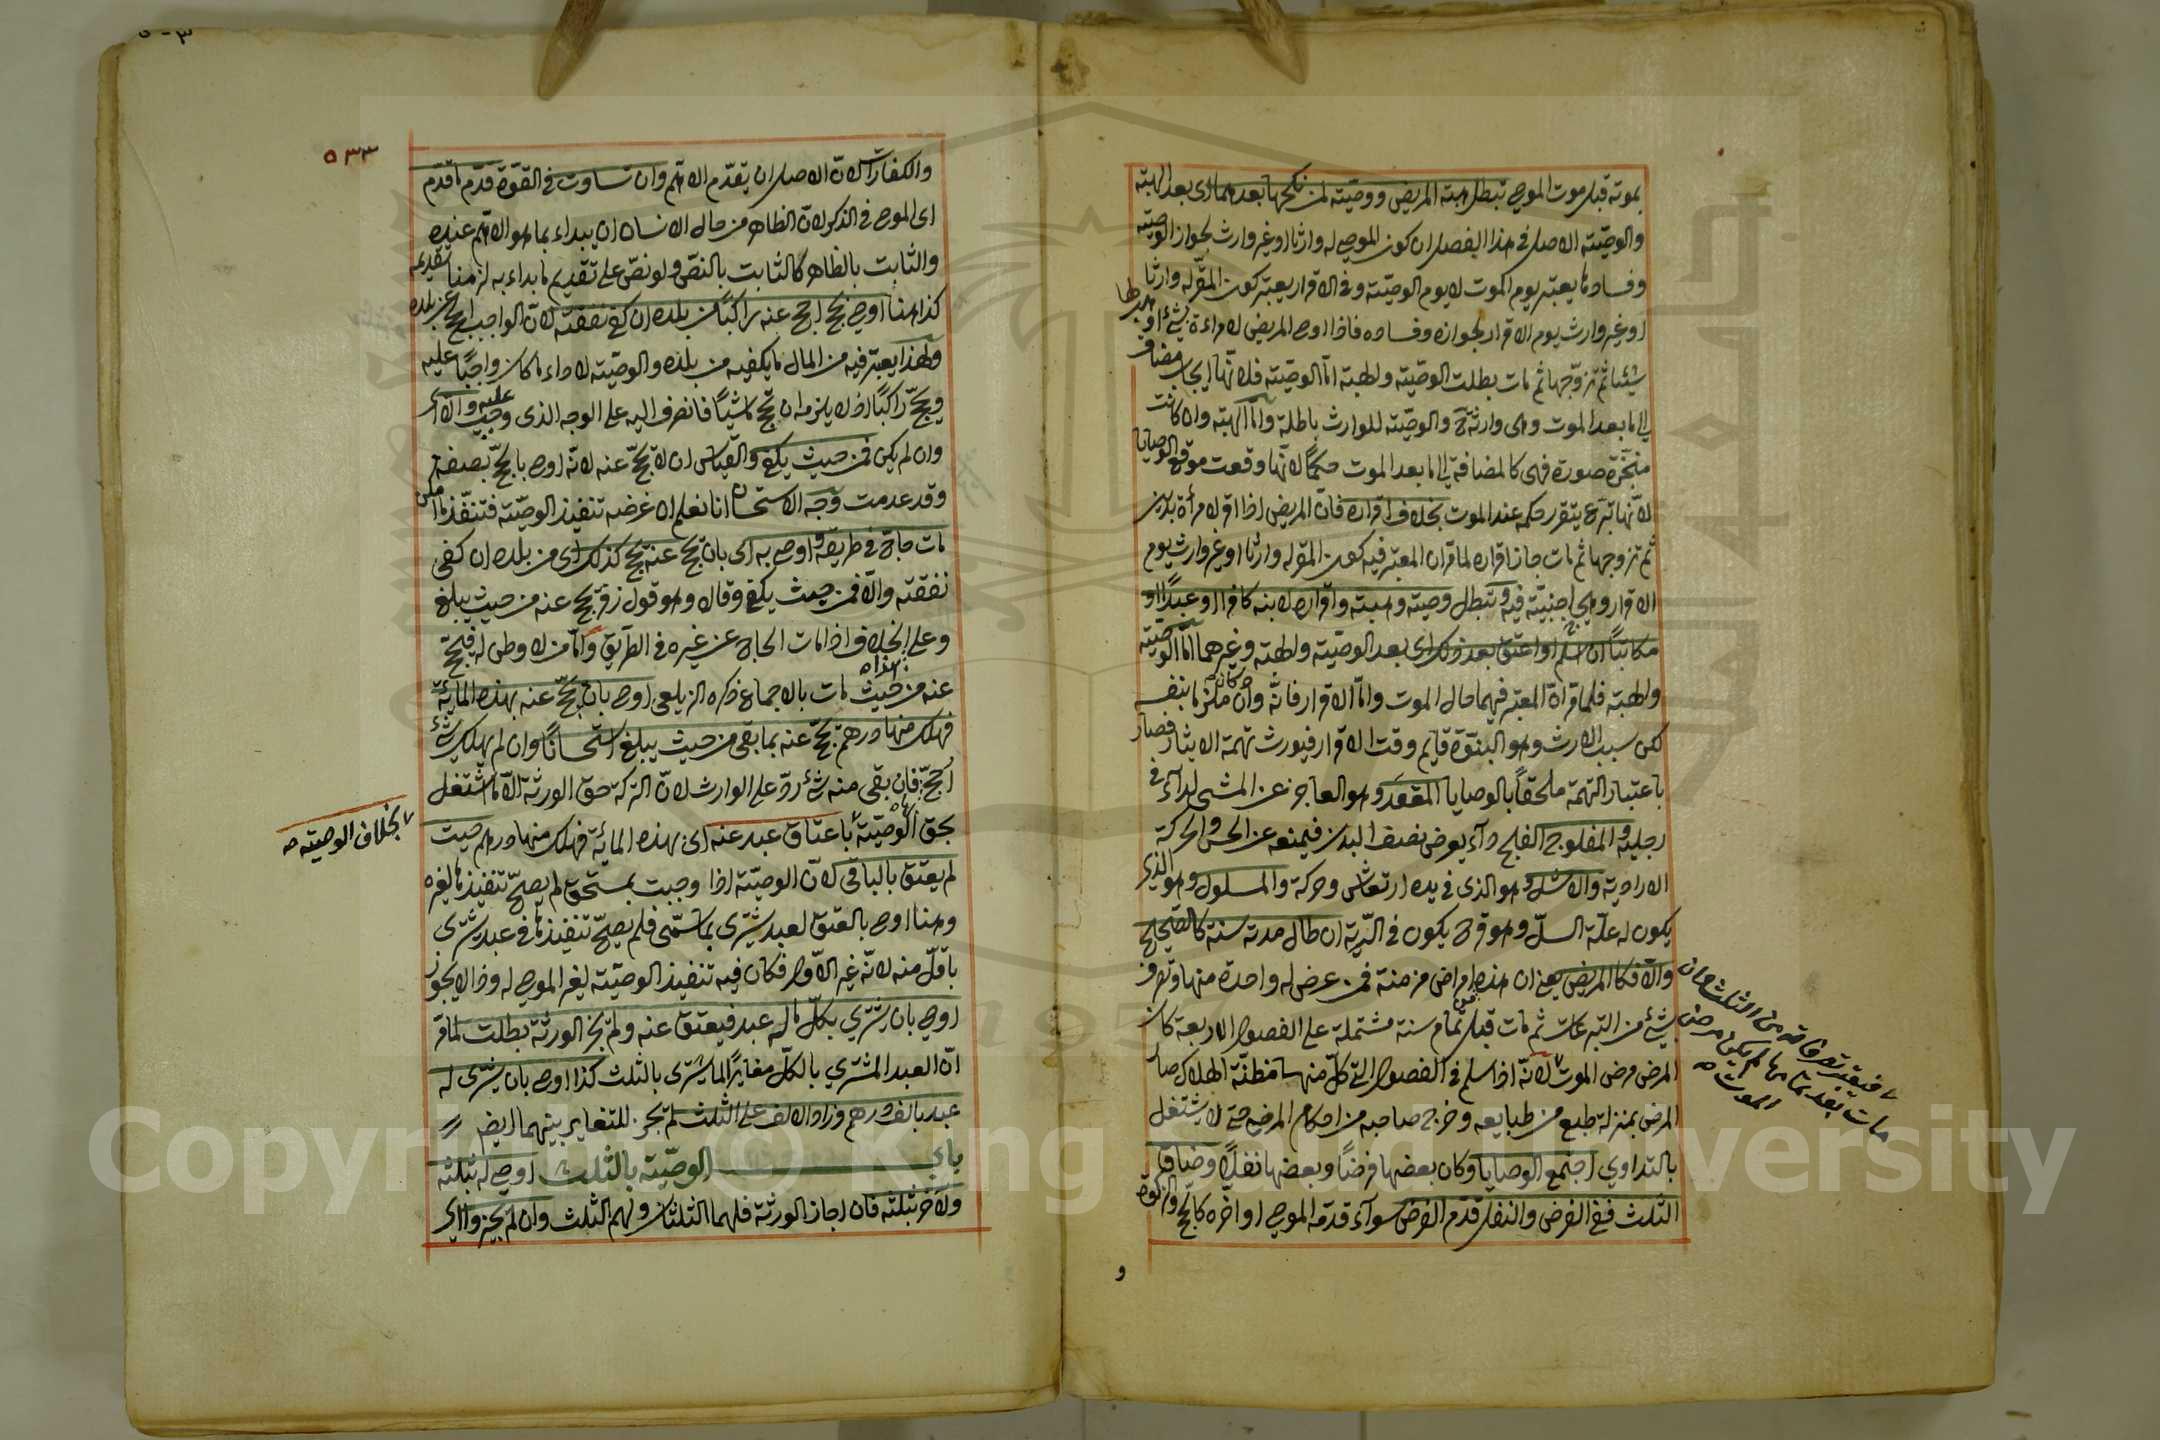 بموته قبل موت الموصي تبطل هبة المريض ووصيته لمن نكحها بعدهما اى بعد الهبة
والوصية الاصل في هذا الفصل ان كون الموصى له وارثا او غير وارث لجواز الوصية
وفسادها يعتبر يوم الموت لا يوم الوصية وفى الاقرار يعتبر كون المقر له وارثا
او غير وارث يوم الاقرار لجوازه وفساده فاذا اوصى المريض لامراءة بشئ او وهب لها
شيئا ثم تزوجها ثم مات بطلت الوصية والهبة اما الوصية فلانها ايجاب مضاف
الى ما بعد الموت وهى وارثة ح والوصية للوارث باطلة واما الهبة وان كانت
منجزة صورة فهى كالمضافة الى ما بعد الموت حكما لانها وقعت موقع الوصايا
لانها تبرع يتقرر حكمه عند الموت بخلاف اقراره فان المريض اذا اقر لامرأة بدين
ثم تزوجها ثم مات جاز اقراره لما مر ان المعتبر فيه كون المقر له وارثا او غير وارث يوم
الاقرار وهى اجنبية فيه وتبطل وصيته وهبته واقراره لابنه كافرا او عبدا او
مكاتبا ان اسلم او اعتق بعد ذلك اى بعد الوصية والهبة وغيرهما اما الوصية
والهبة فلما مر ان المعتبر فيهما حال الموت واما الاقرار فانه وان كان ملزما بنفسه
لكن سبب الارث وهو البنوة قايم وقت الاقرار فيورث تهمة الايثار فصار
باعتبار التهمة ملحقا بالوصايا المقعد وهو العاجز عن المشى لداء فى
رجليه والمفلوج الفلج داء يعرض نصف البدن فيمنعه عن الحس والحركة
الارادية والاشل وهو الذى فى يده ارتعاش وحركة والمسلول وهو الذى
يكون له علة السل وهو قرح يكون فى الرية ان طال مدته سنة كالصحيح
والا فكالمريض يعنى ان هذه امراض مزمنة فمن عرض له واحدة منها وتصرف
بشئ من التبرعات ثم مات قبل تمام سنة مشتملة على الفصول الاربعة كان
المرض مرض الموت لانه اذا سلم فى الفصول التى كل منها مظنة الهلاك صار
المرض بمنزلة طبع من طبايعه وخرج صاحبه من احكام المرضى حتى لا يشتغل
بالتداوي اجتمع الوصايا وكان بعضها فرضا وبعضها نفلا وضاق
الثلث ففى الفرض والنفل قدم الفرض سواء قدمه الموصى او اخره كالحج والزكوة
و
٥٣٣
والكفارات لان الاصل ان يقدم الاهم وان تساوت فى القوة قدم ما قدم
اى الموصى فى الذكر لان الظاهر من حال الانسان ان يبداء بما هو الاهم عنده
والثابت بالظاهر كالثابت بالنص ولو نص على تقديم ما بداء به لزمنا تقديمه
كذا هنا اوصى بحج احج عنه راكبا من بلده ان كفى نفقته لان الواجب الحج عن بلده
ولهذا يعتبر فيه من المال ما يكفيه من بلده والوصية لاداء ما كان واجبا عليه
ويحج راكبا اذ لا يلزمه ان يحج ماشيا فانصرف اليه على الوجه الذى وجب عليه والا اى
وان لم يكف فمن حيث يكفى والقياس ان لا يحج عنه لانه اوصى بالحج بصفة
وقد عدمت وجه الاستحسان انا نعلم ان غرضه تنفيذ الوصية فتنفذ ما امكن
مات حاج فى طريقه واوصى به اى بان يحج عنه يحج كذلك اى من بلده ان كفى
نفقته والا فمن حيث يكفى وقالا وهو قول زفر يحج عنه من حيث يبلغ
وعلى هذا الخلاف اذا مات الحاج عن غيره فى الطريق واما من لا وطن له فيحج
عنه من حيث مات بالاجماع ذكره الزيلعى اوصى بان يحج عنه بهذه الماية
فهلك منها درهم يحج عنه بما بقى من حيث يبلغ استحسانا وان لم يهلك شئ
احج فان بقى منه شئ رد على الوارث لان التركة حق الورثة الا ما اشتغل
بحق الوصية باعتاق عبد عنه اى بهذه الماية فهلك منها درهم حيث
لم يعتق بالباقى لان الوصية اذا وجبت لمستحق لم يصح تنفيذها لغيره
وهنا اوصى بالعتق لعبد يشترى بما سمى فلم يصح تنفيذها فى عبد يشترى
باقل منه لانه غير الاول فكان فيه تنفيذ الوصية لغير الموصى له وذا لا يجوز
اوصى بان يشتري بكل ماله عبد فيعتق عنه ولم يجز الورثة بطلت لما مر
ان العبد المشتري بالكل مغايرا لما يشترى بالثلث كذا اوصى بان يشترى له
عبد بالف درهم وزاد الالف على الثلث لم يجز للتغاير بينهما ايضا
باب الوصية بالثلث اوصى له بثلثه
ولآخر بثلثه فان اجاز الورثة فلهما الثلثان ولهم الثلث وان لم يجيزوا اى
بخلاف الوصية صح